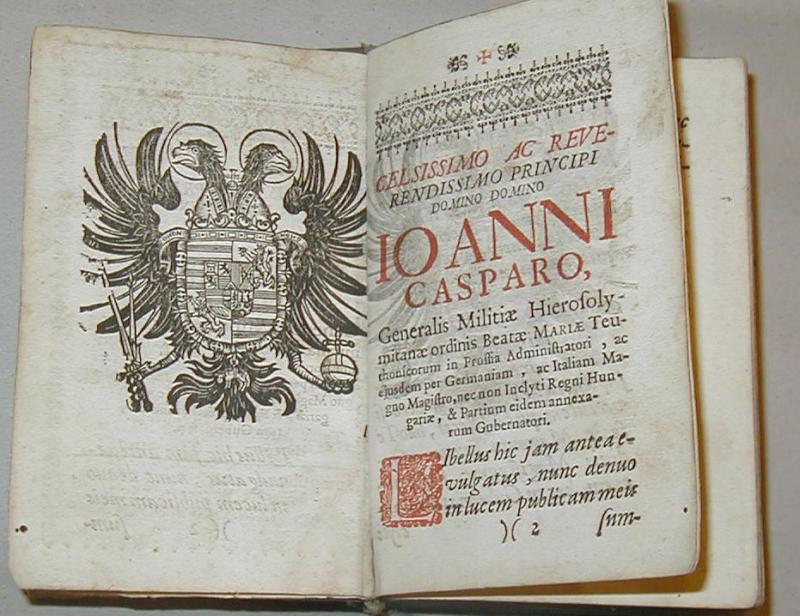 CELSISSIMO AC REVE-
RENDISSIMO PRINCIPI
DOMINO DOMINO
IOANNI
CASPARO,
Generalis Militiæ Hierosoly-
mitanæ ordinis Beatæ MARIÆ Teu-
thonicorum in Prussia Administratori, ac
ejusdem per Germaniam, ac Italiam Ma-
gno Magistro, nec non Inclyti Regni Hun-
gariæ, & Partium eidem annexa-
rum Gubernatori.
LIbellus hic jam antea e-
vulgatus, nunc denuo
in lucem publicam meis
)( 2 sum-